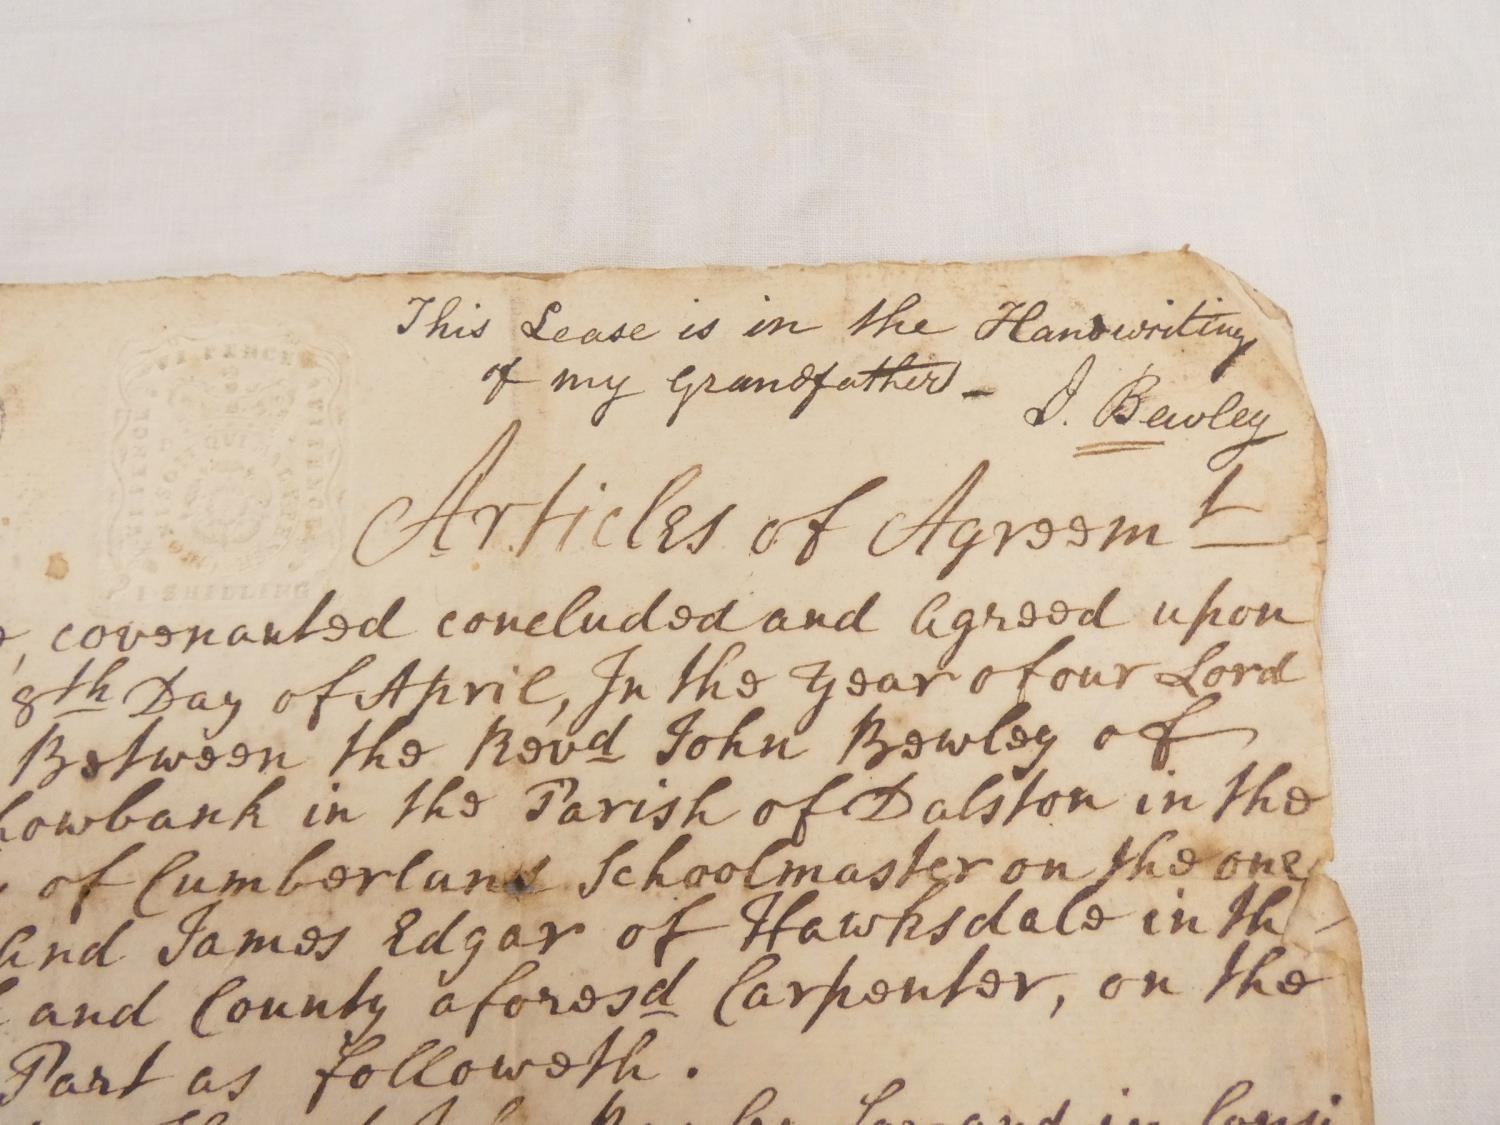 This Lease is in the Handwriting
of my Grandfather -
J. Bewley
VI PENCE
I SHILLING
Articles of Agreemt
covenanted concluded and Agreed upon
8th Day of April, In the Year of our Lord
Between the Revd John Bewley of
howbank in the Parish of Dalston in the
of Cumberland Schoolmaster on the one
and James Edgar of Hawksdale in th
and County aforesd Carpenter, on the
Part as followeth.